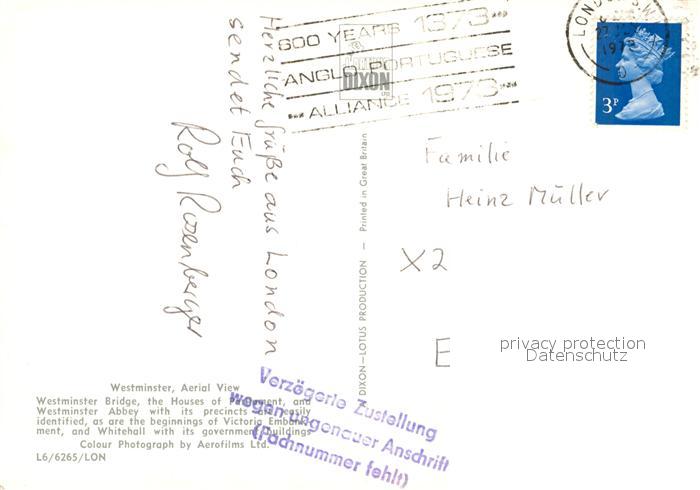 Herzliche Grüße aus London
sendet Euch
Rolf Rosenberger
600 YEARS 1373
ANGLO-PORTUGUESE
ALLIANCE 1973
DIXON
LTD
LONDON S.W.
1973
3P
Familie
Heinz Müller
X2
E
privacy protection
Datenschutz
DIXON—LOTUS PRODUCTION — Printed in Great Britain
Westminster, Aerial View
Westminster Bridge, the Houses of Parliament, and
Westminster Abbey with its precincts are easily
identified, as are the beginnings of Victoria Embank-
ment, and Whitehall with its government buildings
Colour Photograph by Aerofilms Ltd.
L6/6265/LON
Verzögerte Zustellung
wegen ungenauer Anschrift
(Fachnummer fehlt)